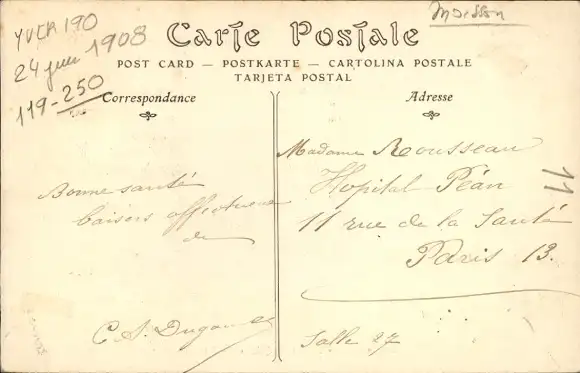 YVER 190
24 juin 1908
119-250
Moisson
Carte Postale
POST CARD — POSTKARTE — CARTOLINA POSTALE
TARJETA POSTAL
Correspondance
Adresse
Bonne santé
baisers affectueux
de
Madame Rousseau
Hopital Péan
11 rue de la Santé
Paris 13.
Salle 27
11